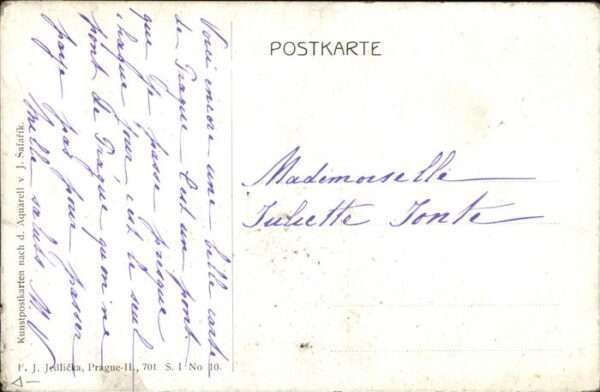 POSTKARTE
Voici encore une belle carte
de Prague. C'est un pont
que je passe presque
chaque jour, c'est le seul
pont de Prague qu'on ne
paye pas pour passer
Mille saluts M. V.
Mademoiselle
Juliette Jonte
Kunstpostkarten nach d. Aquarell v. J. Šafařík.
F. J. Jedlička, Prague-II., 701 S. I No 10.